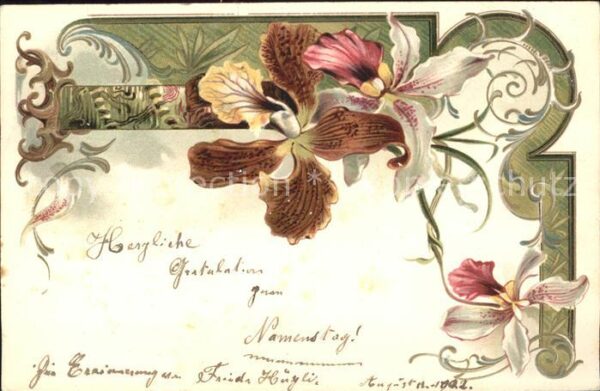 Herzliche
Gratulation
zum
Namenstag!
Zur Erinnerung von Frieda Hügli.
August